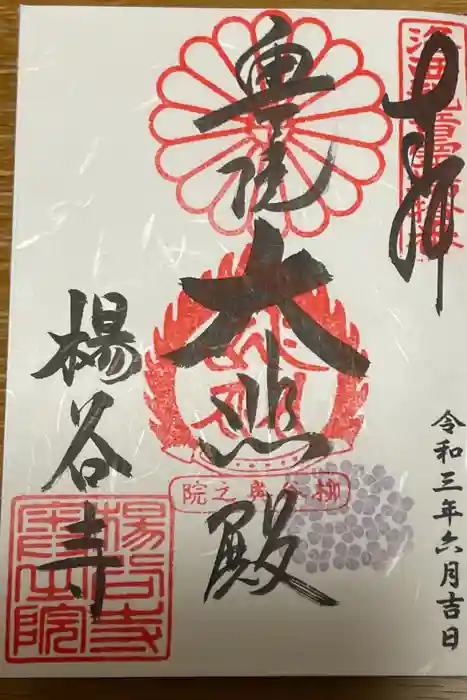 奉拝
洛西観音霊場
令和三年六月吉日
奥院
大悲殿
柳谷奥之院
楊谷寺
楊谷寺
奥之院